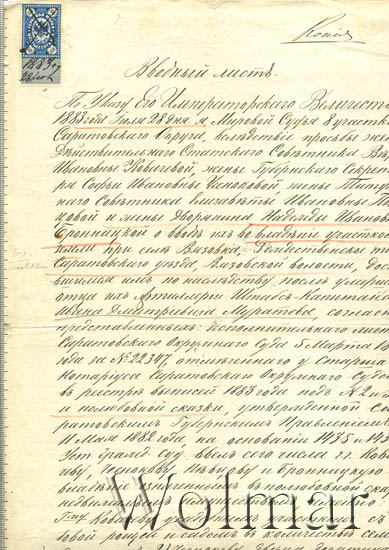 Копія
Вводный листъ.
По Указу Его Императорскаго Величест
1883 года Іюля 28 дня, я, Мировой Судья 8 участк
Саратовскаго Округа, вслѣдствіе просьбы жен
Дѣйствительнаго Статскаго Совѣтника
Ивановны Ковалевой, жены Губернскаго Секрет
ра Софьи Ивановны жены Титу
лярнаго Совѣтника Елизаветы Ивановны
цовой и жены Дворянина Надежды Иванов
Бронницкой о вводѣ ихъ во владѣніе участко
земли при селѣ Вязовка, Рождественское то
Саратовскаго уѣзда, Вязовской волости, дос
вшимся имъ по наслѣдству послѣ умерш
отца ихъ Артиллеріи Штабсъ-Капитан
Ивана Дмитріевича Муратова, соглас
представленныхъ: исполнительнаго лис
Саратовскаго Окружнаго Суда 5 Марта 18
года за № 22347, отмѣченнаго у Старша
Нотаріуса Саратовскаго Окружнаго Суд
въ реестрѣ выписей 1883 года подъ № 2
и полюбовной сказки, утвержденной Са
ратовскимъ Губернскимъ Правленіем
Мая 1882 года, на основаніи 1435 и 14
Уст. гражд. суд. ввелъ сего числа гг. Кова
леву, и Бронницкую во
владѣніе
недвижимымъ
Г-жу Ковалеву
рощей и садомъ въ количествѣ
Wolmar